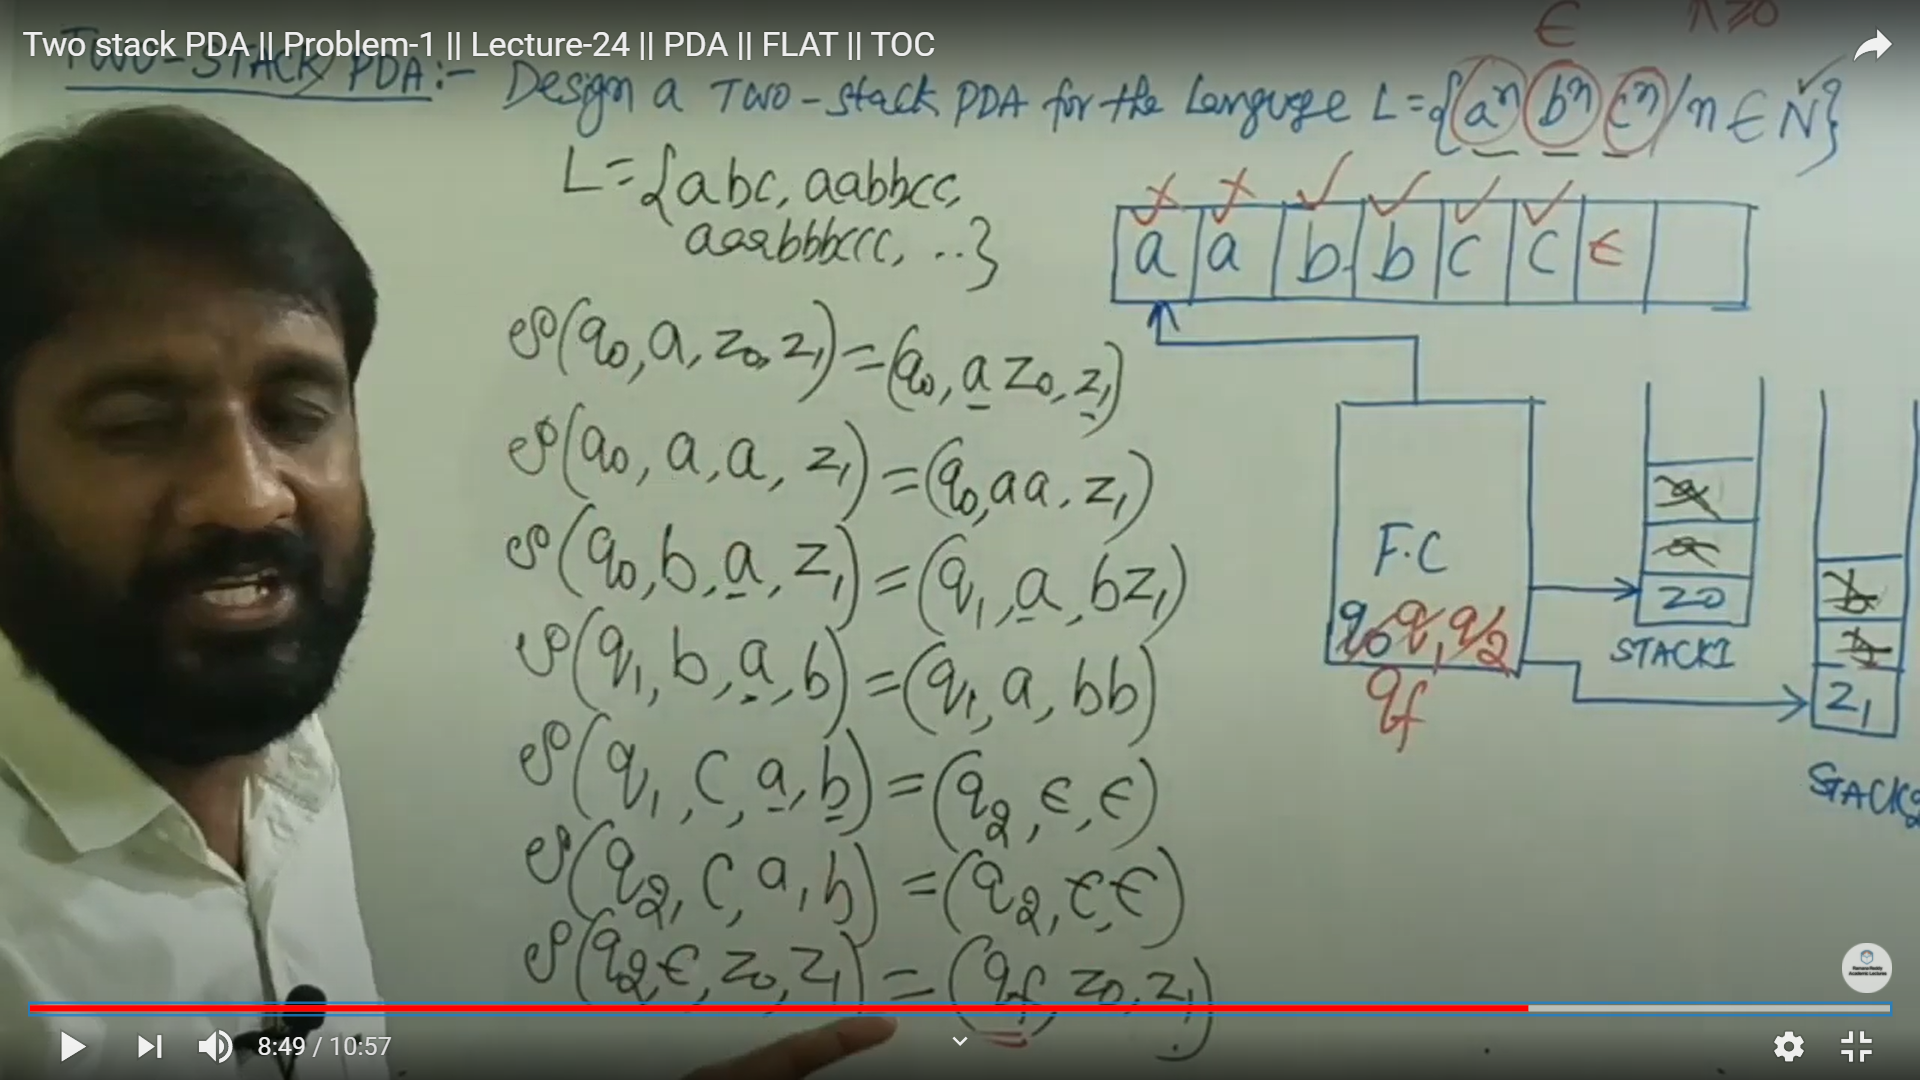 Two stack PDA || Problem-1 || Lecture-24 || PDA || FLAT || TOC
ϵ n≥0
TWO-STACK PDA:- Design a TWO-stack PDA for the Language L={aⁿ bⁿ cⁿ/n ∈ N}
L={abc, aabbcc,
aaabbbccc, ..}
a a b b c c ϵ
δ(q0, a, z0, z1)=(q0, a z0, z1)
δ(q0, a, a, z1)=(q0, aa, z1)
δ(q0, b, a, z1)=(q1, a, bz1)
δ(q1, b, a, b)=(q1, a, bb)
δ(q1, c, a, b)=(q2, ϵ, ϵ)
δ(q2, c, a, b)=(q2, ϵ, ϵ)
δ(q2 ϵ, z0, z1)=(qf, z0, z1)
F.C
q0 q1 q2
qf
a
a
z0
STACK1
b
b
z1
STACK2
8:49 / 10:57